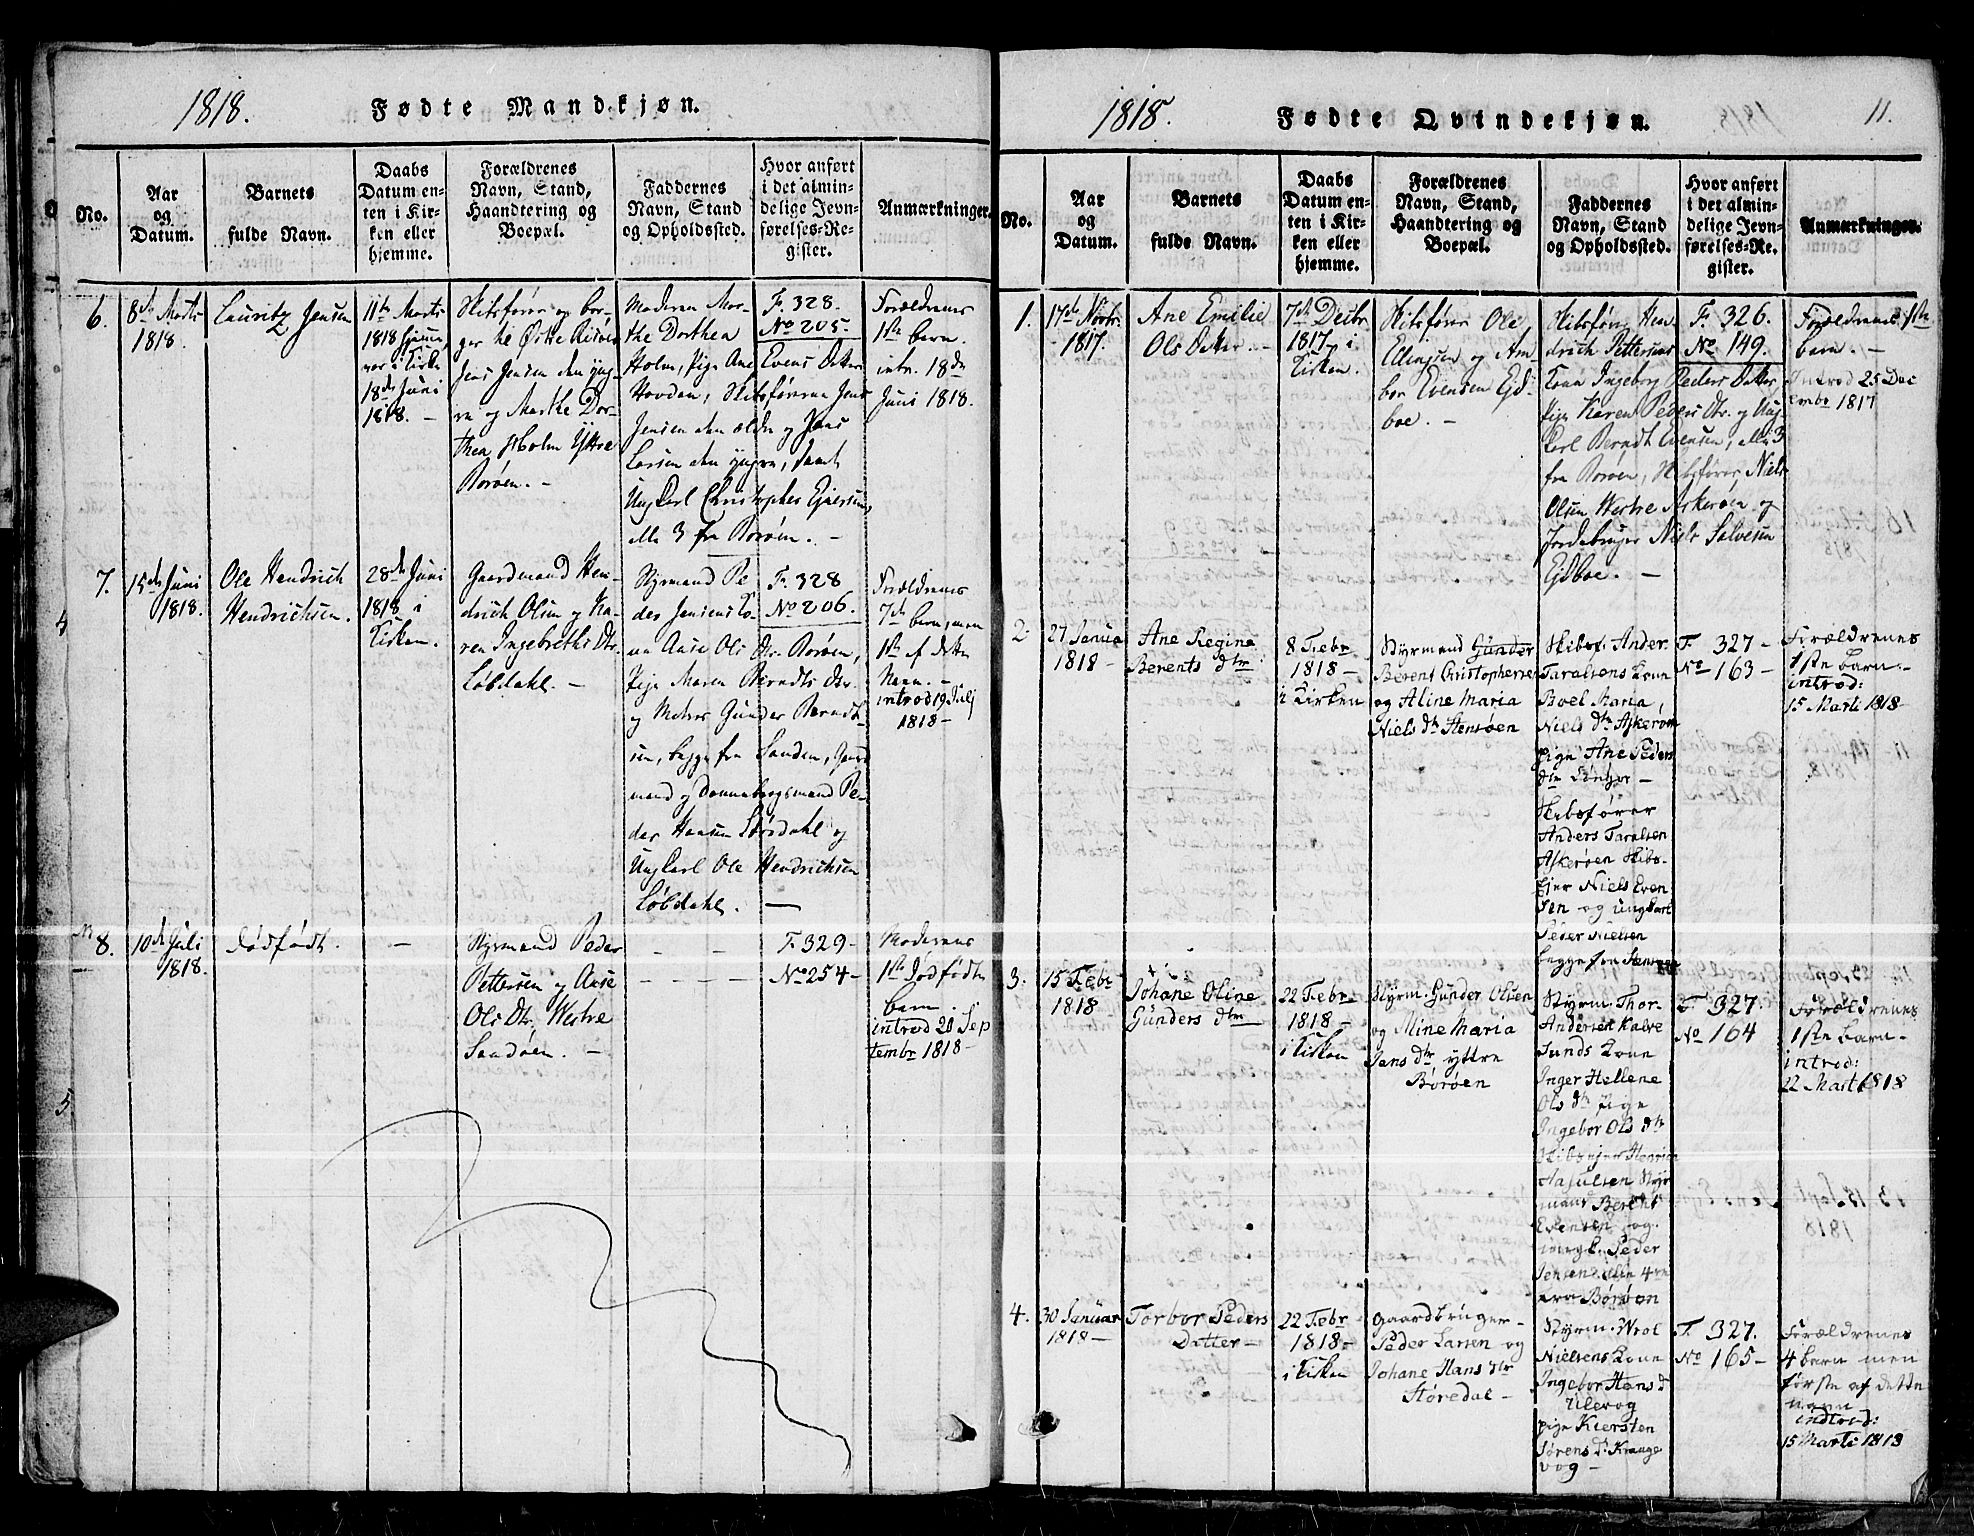 1818.
Fødte Mandkjøn.
No.
Aar
og
Datum.
Barnets
fulde Navn.
Daabs
Datum en-
ten i Kir-
ken eller
hjemme.
Forældrenes
Navn, Stand,
Haandtering og
Boepæl.
Faddernes
Navn, Stand
og Opholdssted.
Hvor anført
i det almin-
delige Jevn-
førelses-Re-
gister.
Anmærkninger.
6.
8de Marts
1818.
Lauritz Jensen
11te Marts
1818 hjem-
18de Juni
1818. –
Skibsfører og bor-
ger
Jens Jensen den yng-
re og Marthe Dor-
thea Holm Yttre
Borøen. –
Moderen Mar-
the Dorthea
Holm, Pige Ane Evens Datter
Hovden, Skibsførerne Jens
Jensen den ældre og Jens
Larsen den yngre, samt
Ungkarl Christopher Ejversen,
alle 3 fra Borøen. –
F. 328.
No 205.
Forældrenes
1ste barn.
intr. 18de
Juni 1818.
7.
15de Juni
1818.
Ole Hendrich
Hendrichsen.
28de Juni
1818 i
Kirken.
Gaardmand Hen-
drich Olsen og Ka-
ren Ingebreths Dtr.
Løvdahl. –
Styrmand Pe-
der Jensens Ko-
ne Anse Ols Dtr. Borøen,
Pige Maren Berndts Dtr.
og Matros Gunder Berndt-
sen, begge fra Sanden, Gaard
mand og Dannebrogsmand Pe-
der Hansen Størdahl og
Ungkarl Ole Hendrichsen
Løvdahl. –
F. 328
No 206.
Forældrenes
7de barn, men
1ste af dette
Navn. –
introd 19 Julj
1818 –
8.
10de Juli
1818.
Dødfødt.
–
Styrmand Peder
Pettersen og Anse
Ols Dtr. Westre
Sandøen. –
F. 329 –
No 254 –
Moderens
1ste dødfødte
barn.
introd 20 Sep
tembr 1818 –
4
5
1818.
Fødte Qvindekjøn.
11.
No.
Aar
og
Datum.
Barnets
fulde Navn.
Daabs
Datum en-
ten i Kir-
ken eller
hjemme.
Forældrenes
Navn, Stand,
Haandtering og
Boepæl.
Faddernes
Navn, Stand
og Opholdssted.
Hvor anført
i det almin-
delige Jevn-
førelses-Re-
gister.
Anmærkninger.
1.
17de Novbr.
1817.
Ane Emilie
Ols Datter. –
7de Decbr.
1817 i
Kirken.
Skibsfører Ole
Ellingsen og Am
bor Evensen Ejd-
boe. –
Skibsfører Hen-
drich Pettersens
Kone Ingeborg Peders Datter
Pige Karen Peders Dtr. og Ung
karl Berndt Evensen, alle 3
fra Borøen, Skibsfører Niels
Olsen Westre Askerøen og
Jordebruger Niels Salvesen
Ejdboe. –
F. 326.
No 149.
Forældrenes 1ste
barn. –
Introd 25 Dec
embr 1817
2.
27 Janua
1818 –
Ane Regine
Berents dtr
8 Febr
1818 –
i Kirken
Styrmand Gunder
Berent Christophersen
og Aline Maria
Niels dtr Stensøen
Skibsf. Ander
Taralsens kone
Boel Maria
Niels dtr Askerøen
pige Ane Peders
dtr
Skibsfører
Anders Taralsen
Askerøen Skibs-
ejer Niels Even
sen og ungkarl
Peder Nielsen
begge fra
F. 327 –
No 163 –
Forældrenes
1ste barn. –
introd:
15 Marti 1818 –
3.
15 Febr
1818
Johane Oline
Gunders dtr
22 Febr
1818 –
i Kirken
Styrm. Gunder Olsen
og Mine Maria
Jens dtr yttre
Børøen
Styrm. Thor
Andersen Kalve
sunds kone
Inger Hellene
Ols dtr Pige
Ingebor Ols dtr
Skibsejer Henrich
Aasulsen Styr
mand Berent
Evensen og
ungk. Peder
Jensen alle 4re
fra Børøen
F. 327.
No 164
Forældrenes
1ste barn –
introd:
22 Marti 1818
4.
30 Januar
1818 –
Torbor Peders
Datter –
22 Febr
1818 –
i Kirken
Gaardbruger –
Peder Larsen og
Johane Hans dtr
Støredal –
Styrm. Wrol
Nielsens kone
Ingebor Hans d
Ulevog
pige Kiersten
Sørens d. Krange
vog –
F. 327.
No 165 –
Forældrenes
4 barn men
første af dette
navn –
indtrod:
15 Marti 1818